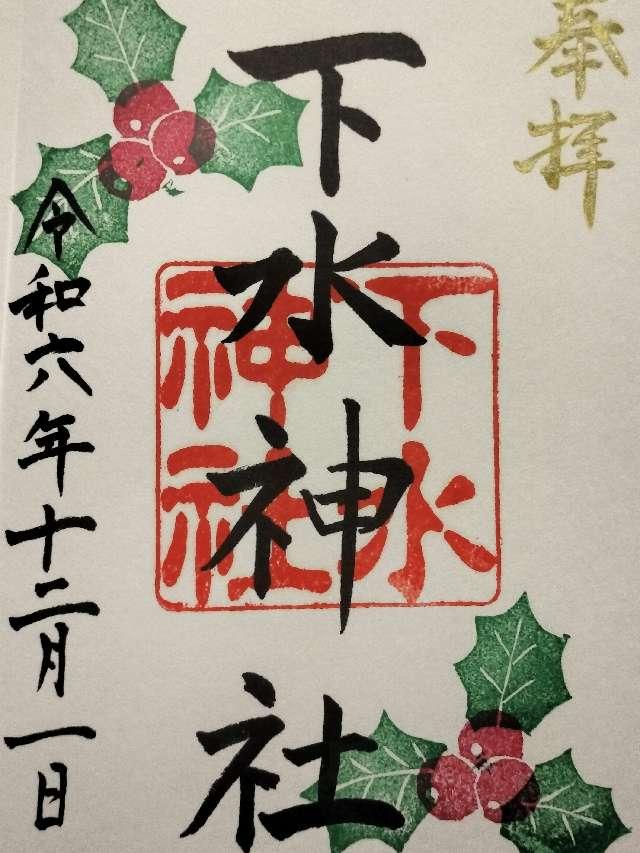 奉拝
下水神社
下水
神社
令和六年十二月一日